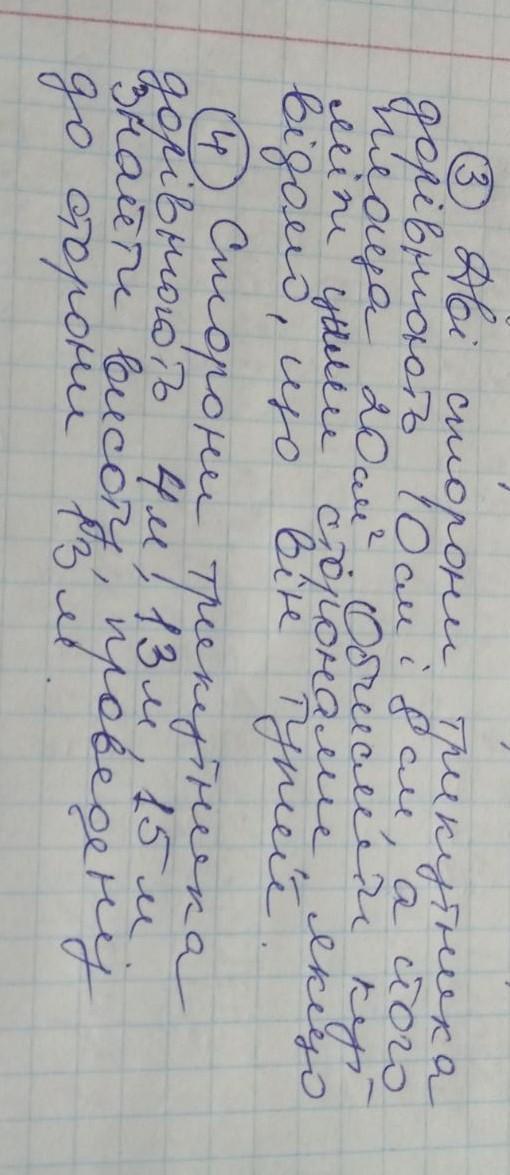 3 Дві сторони трикутника
дорівнюють 10 см і 8 см, а його
площа 20 см² Обчисліть кут
між цими сторонами якщо
відомо, що він тупий.
4 Сторони трикутника
дорівнюють 4 м, 13 м, 15 м
Знайти висоту, проведену
до сторони 13 м.